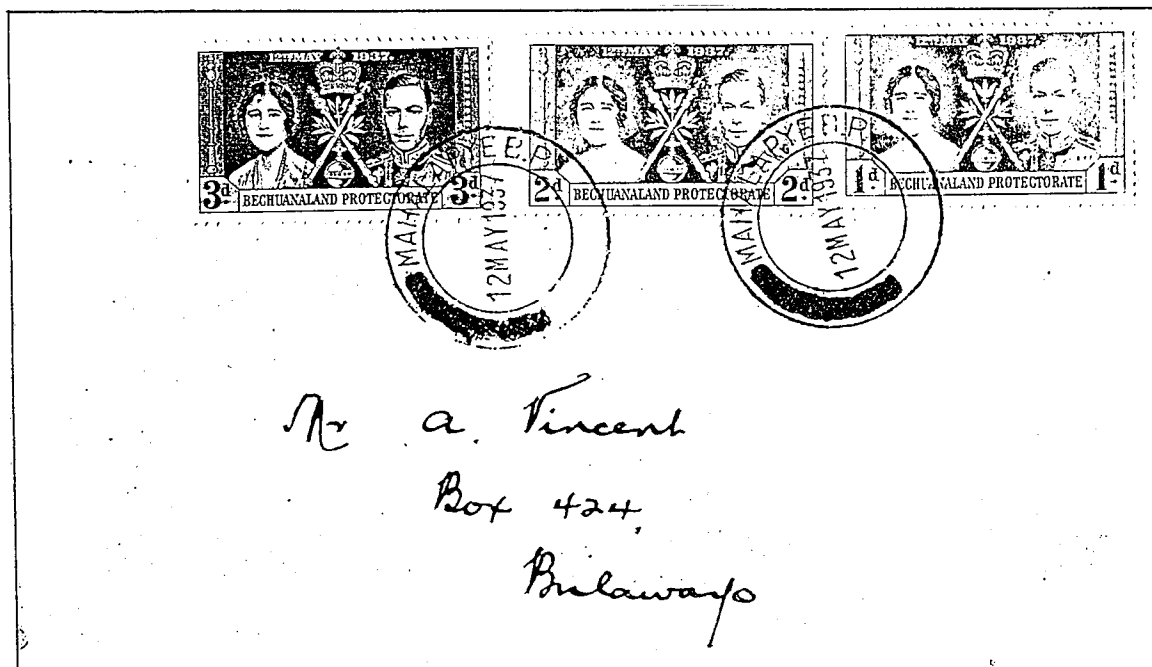 12TH MAY 1937
3d 3d
BECHUANALAND PROTECTORATE
12TH MAY 1937
2d 2d
BECHUANALAND PROTECTORATE
12TH MAY 1937
1d 1d
BECHUANALAND PROTECTORATE
12MAY1937
12MAY1937
Mr A. Vincent
Box 424,
Bulawayo